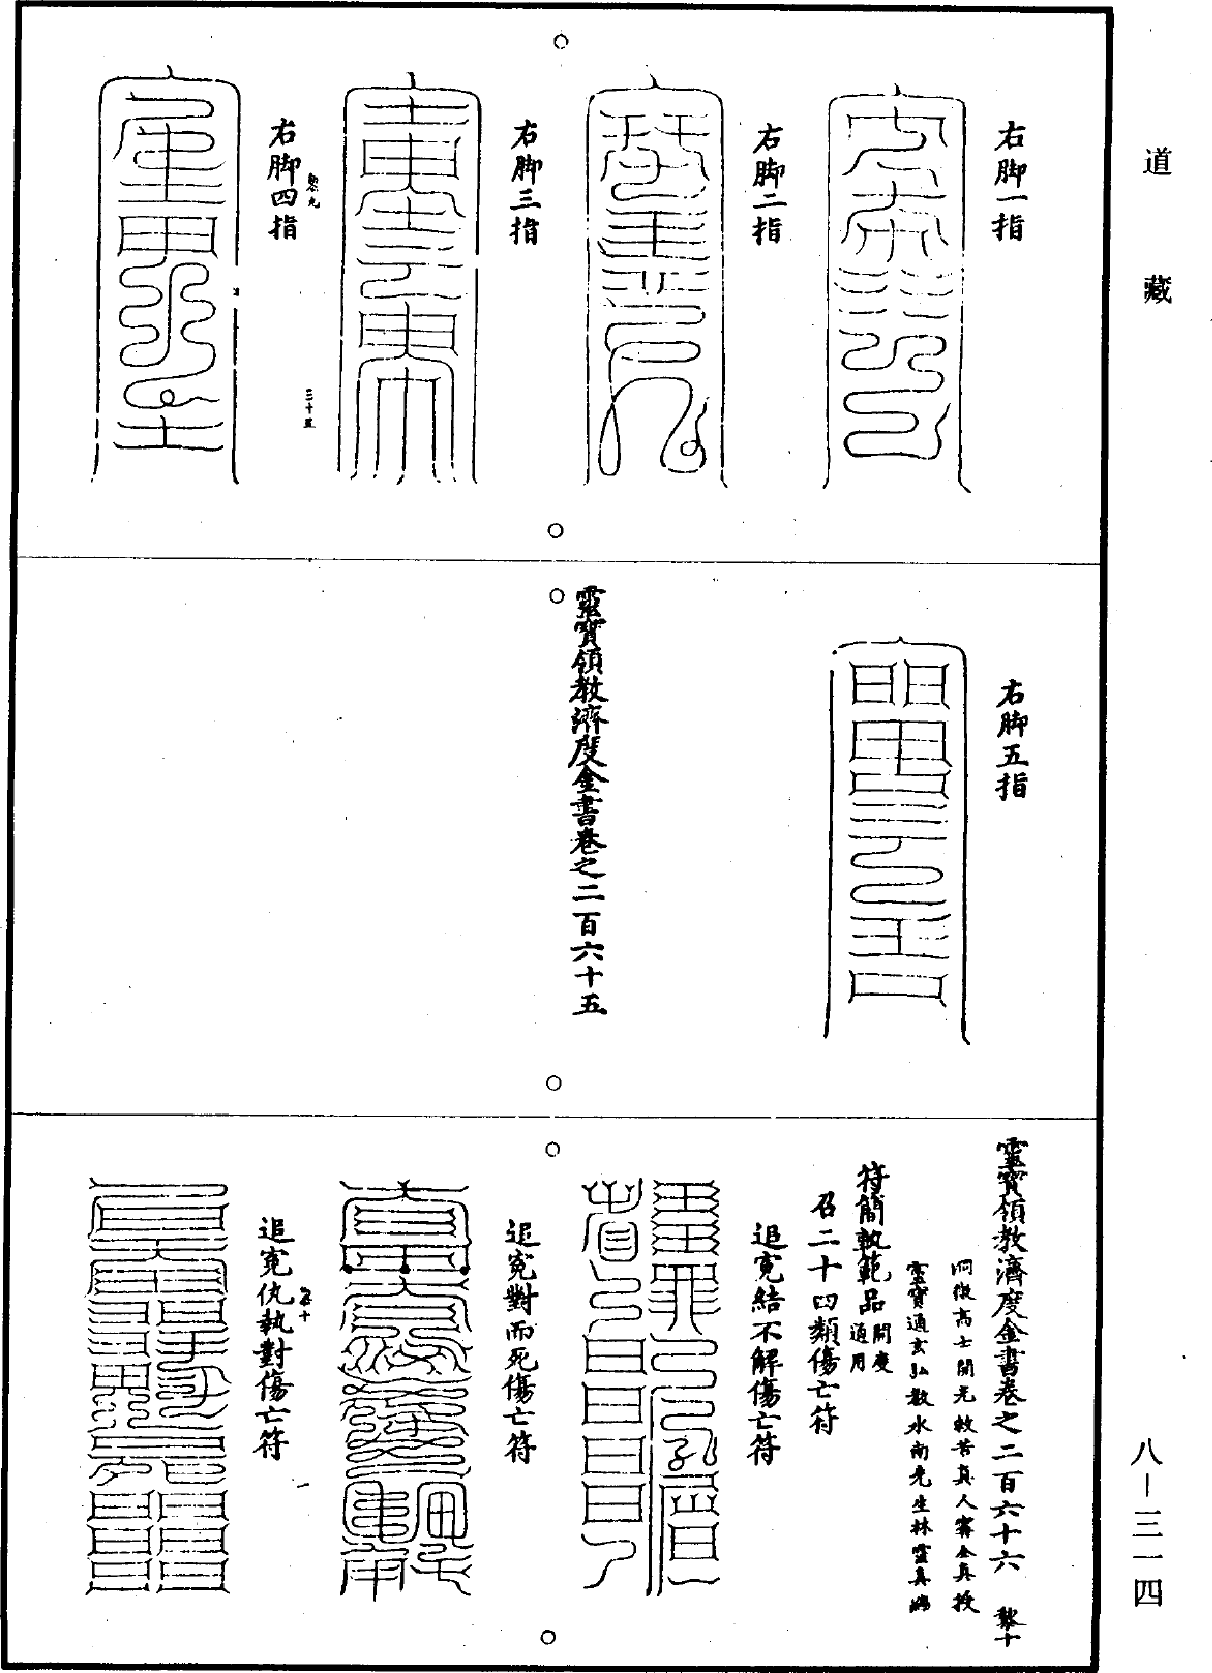 道藏
右脚一指
右脚二指
右脚三指
右脚四指
三十五
右脚五指
靈寶領教濟度金書卷之二百六十五
靈寶領教濟度金書卷之二百六十六
洞微高士開光救苦真人寗全真授
靈寶通玄弘教水南先生林靈真編
符簡軌範品開度通用
召二十四類傷亡符
追寃結不解傷亡符
追寃對而死傷亡符
追寃仇執對傷亡符
八—三一四